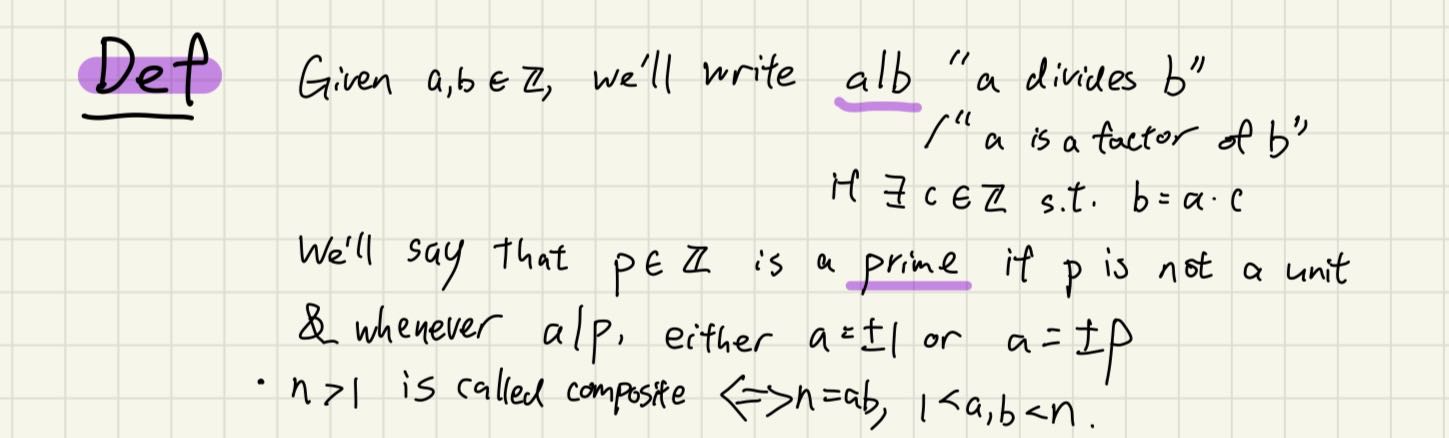 Def Given a,b ∈ ℤ, we'll write a|b "a divides b"
/"a is a factor of b"
if ∃ c ∈ ℤ s.t. b = a · c
We'll say that p ∈ ℤ is a prime if p is not a unit
& whenever a|p, either a = ±1 or a = ±p
· n > 1 is called composite <=> n = ab, 1 < a,b < n.